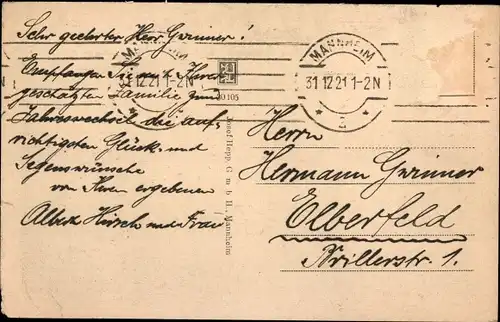 Sehr geehrter Herr Gwinner!
Empfangen Sie mit Ihrer
geschätzten Familie zum
Jahreswechsel die auf-
richtigsten Glück- und
Segenswünsche
von Ihren ergebenen
Albert Hirsch und Frau
MANNHEIM
12.21 1-2N
MANNHEIM
31.12.21 1-2N
Josef Hepp, G. m. b. H., Mannheim
Herrn
Hermann Gwinner
Elberfeld
Brillerstr. 1.